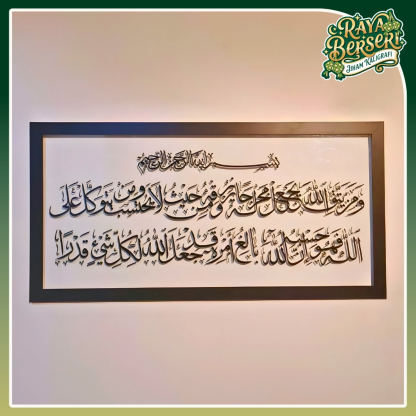 RAYA
BERSERI
JIHAM KALIGRAFI
بسم الله الرحمن الرحيم
ومن يتق الله يجعل له مخرجا ويرزقه من حيث لا يحتسب ومن يتوكل على
الله فهو حسبه إن الله بالغ أمره قد جعل الله لكل شيء قدرا